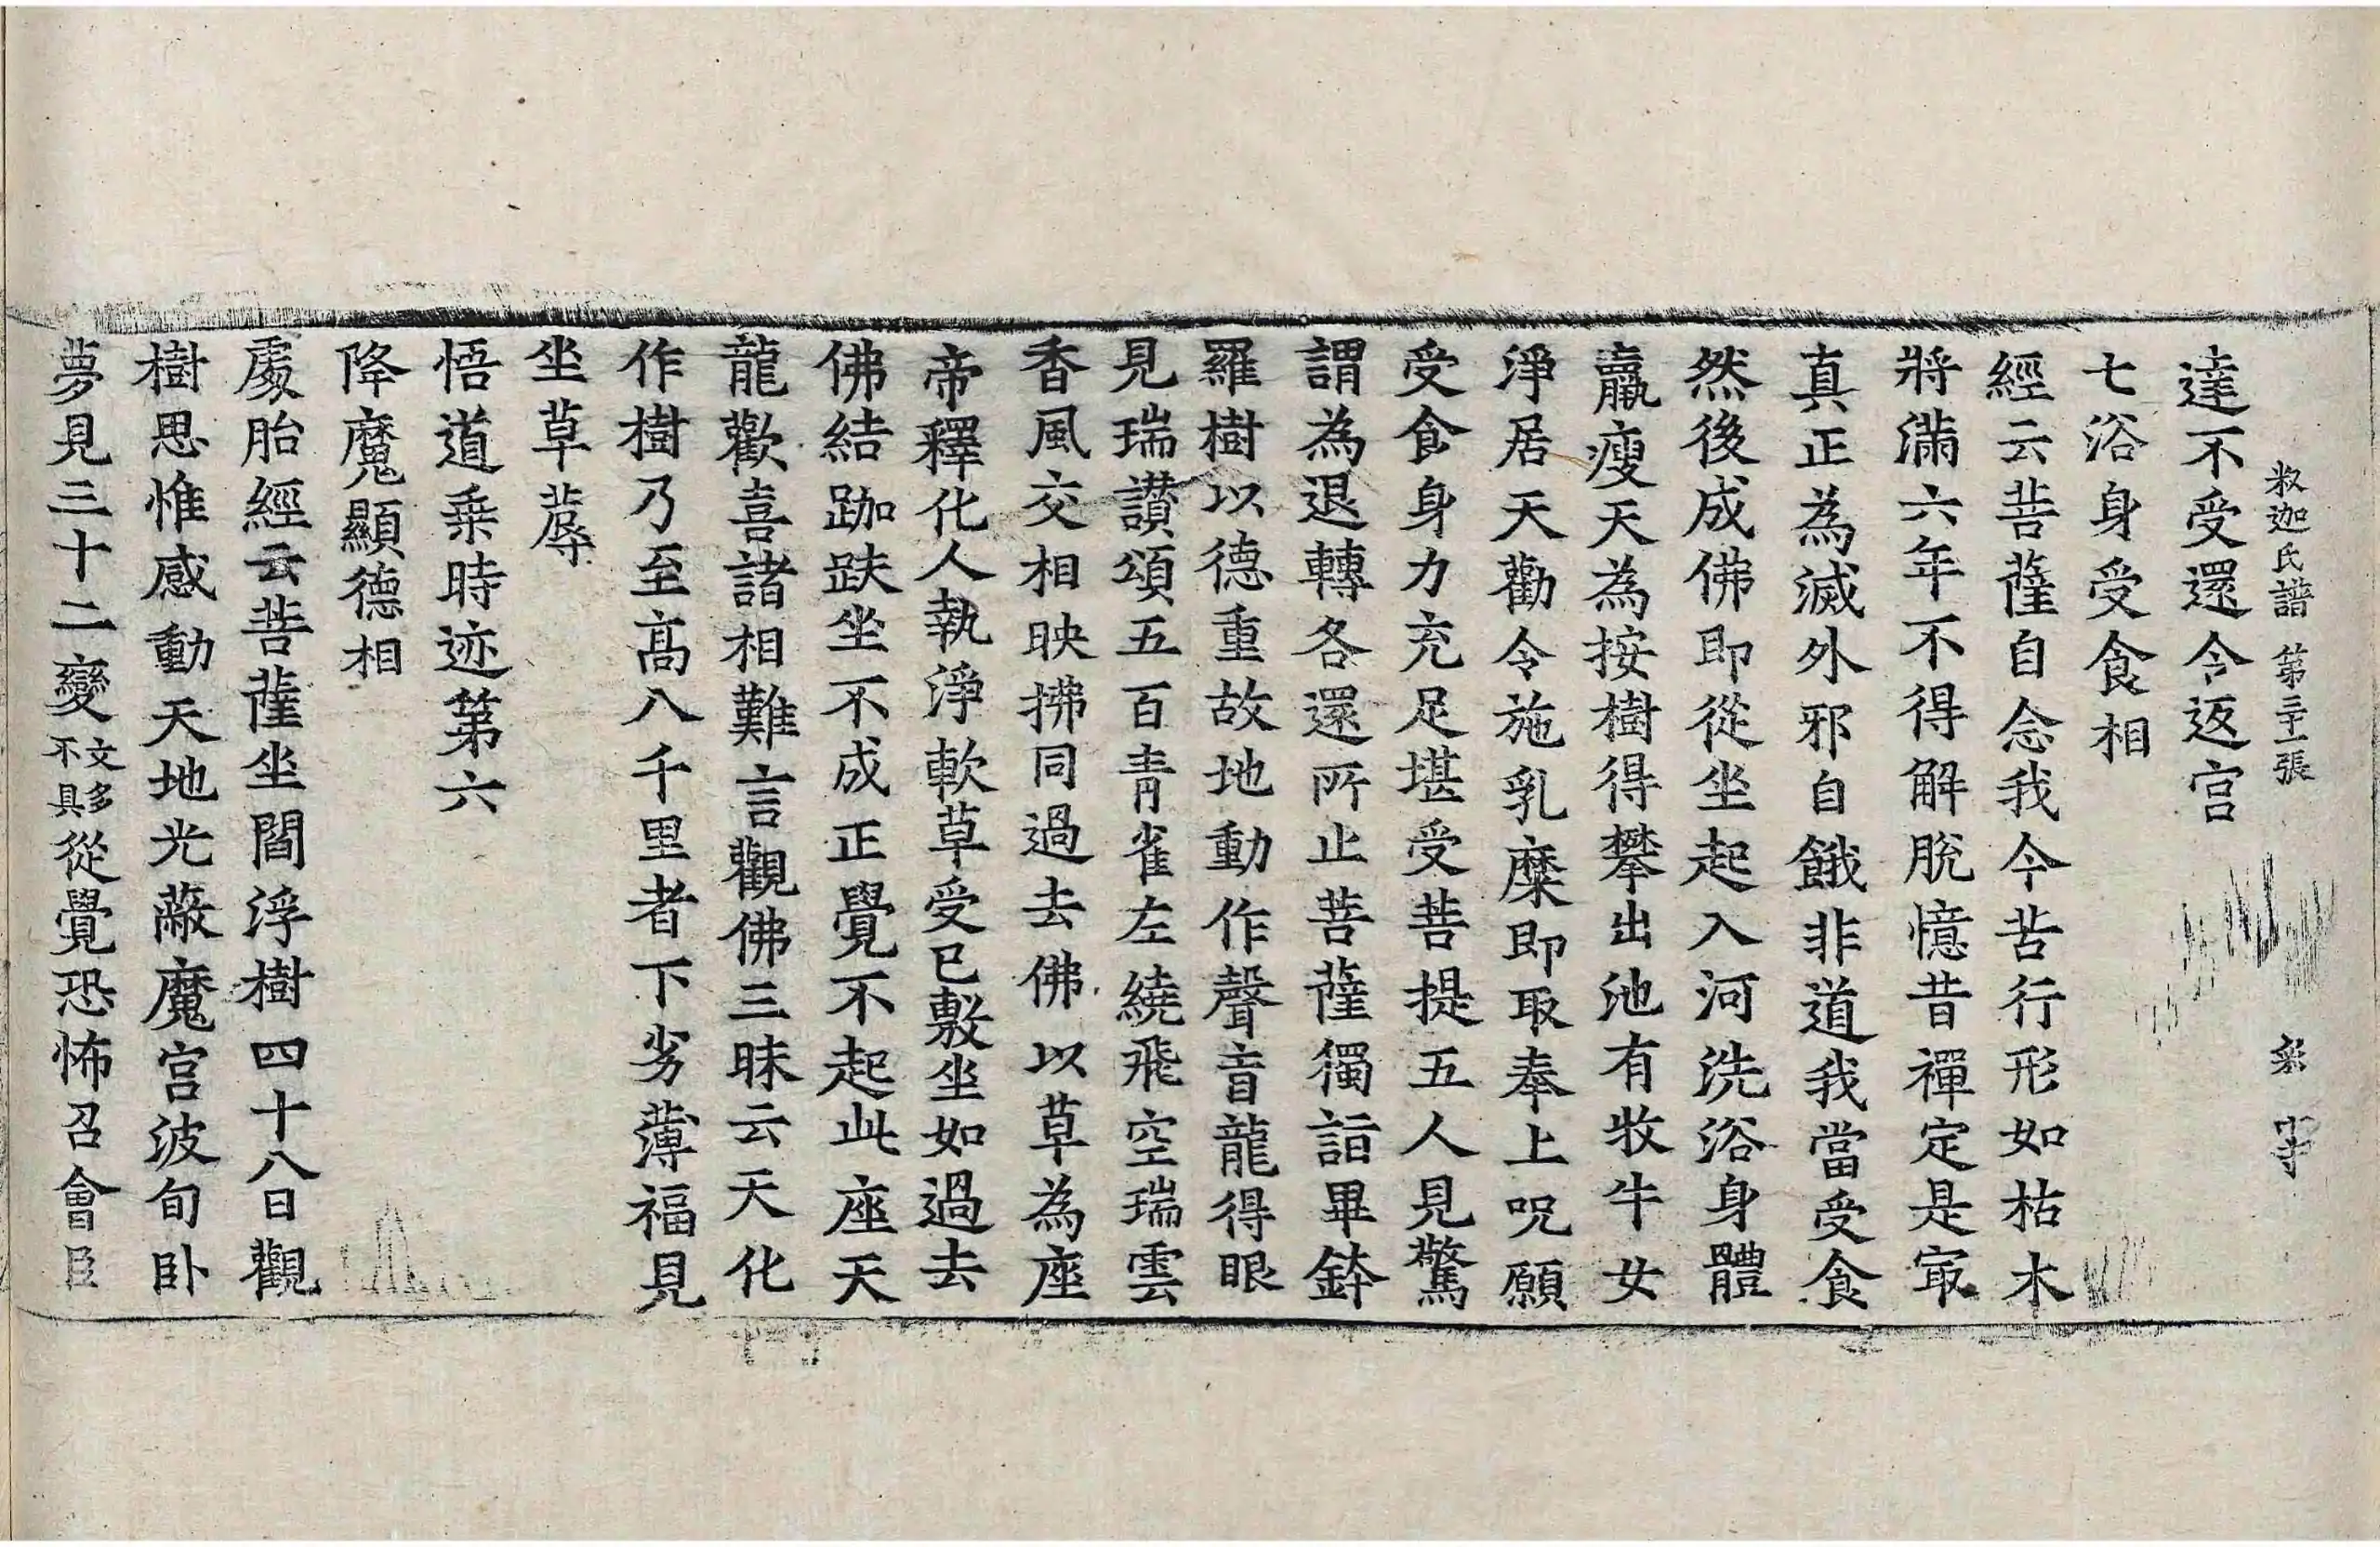 釋迦氏譜 第二十張
達不受還令返宮
七浴身受食相
經云菩薩自念我今苦行形如枯木
將滿六年不得解脫憶昔禪定是㝡
真正為滅外邪自餓非道我當受食
然後成佛即從坐起入河洗浴身體
羸瘦天為按樹得攀出池有牧牛女
淨居天勸令施乳糜即取奉上呪願
受食身力充足堪受菩提五人見驚
謂為退轉各還所止菩薩獨詣畢鉢
羅樹以德重故地動作聲盲龍得眼
見瑞讃頌五百青雀左繞飛空瑞雲
香風交相映拂同過去佛以草為座
帝釋化人執淨軟草受已敷坐如過去
佛結跏趺坐不成正覺不起此座天
龍歡喜諸相難言觀佛三昧云天化
作樹乃至高八千里者下劣薄福見
坐草蓐
悟道乗時迹第六
降魔顯德相
處胎經云菩薩坐閻浮樹四十八日觀
樹思惟感動天地光蔽魔宮波旬卧
夢見三十二變文多不具從覺恐怖召會臣